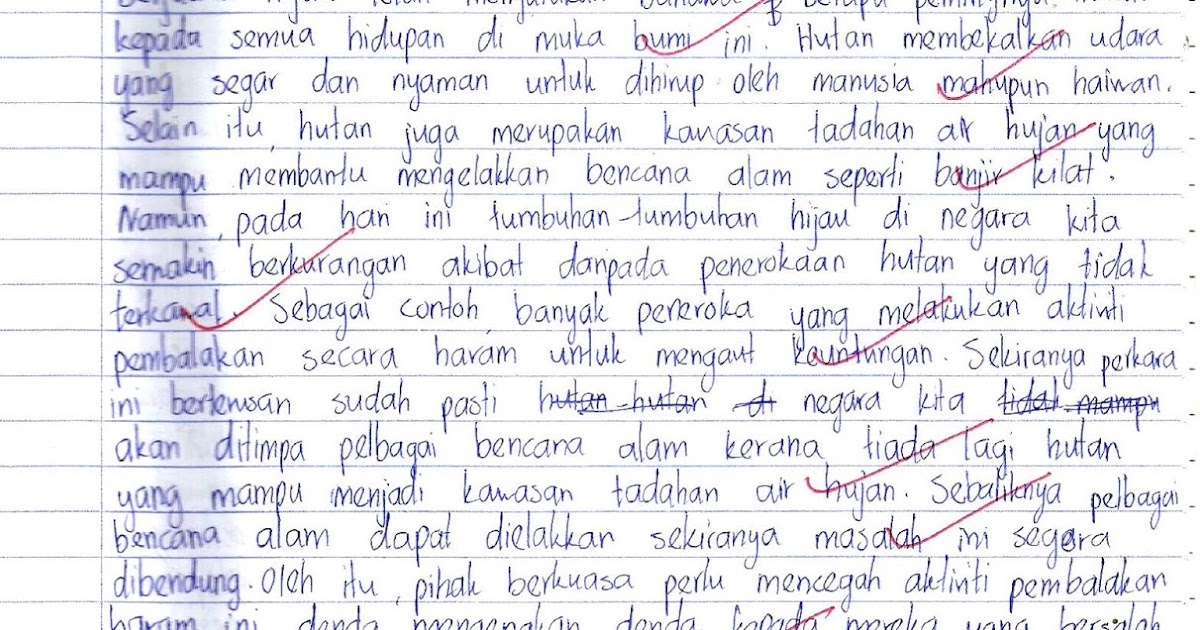 kepada semua hidupan di muka bumi ini. Hutan membekalkan udara
yang segar dan nyaman untuk dihirup oleh manusia mahupun haiwan.
Selain itu, hutan juga merupakan kawasan tadahan air hujan yang
mampu membantu mengelakkan bencana alam seperti banjir kilat.
Namun, pada hari ini tumbuhan-tumbuhan hijau di negara kita
semakin berkurangan akibat daripada penerokaan hutan yang tidak
terkawal. Sebagai contoh, banyak peneroka yang melakukan aktiviti
pembalakan secara haram untuk mengaut keuntungan. Sekiranya perkara
ini berterusan sudah pasti hutan-hutan di negara kita tidak mampu
akan ditimpa pelbagai bencana alam kerana tiada lagi hutan
yang mampu menjadi kawasan tadahan air hujan. Sebaliknya pelbagai
bencana alam dapat dielakkan sekiranya masalah ini segera
dibendung. Oleh itu, pihak berkuasa perlu mencegah aktiviti pembalakan
haram ini dengan mengenakan denda kepada mereka yang bersalah